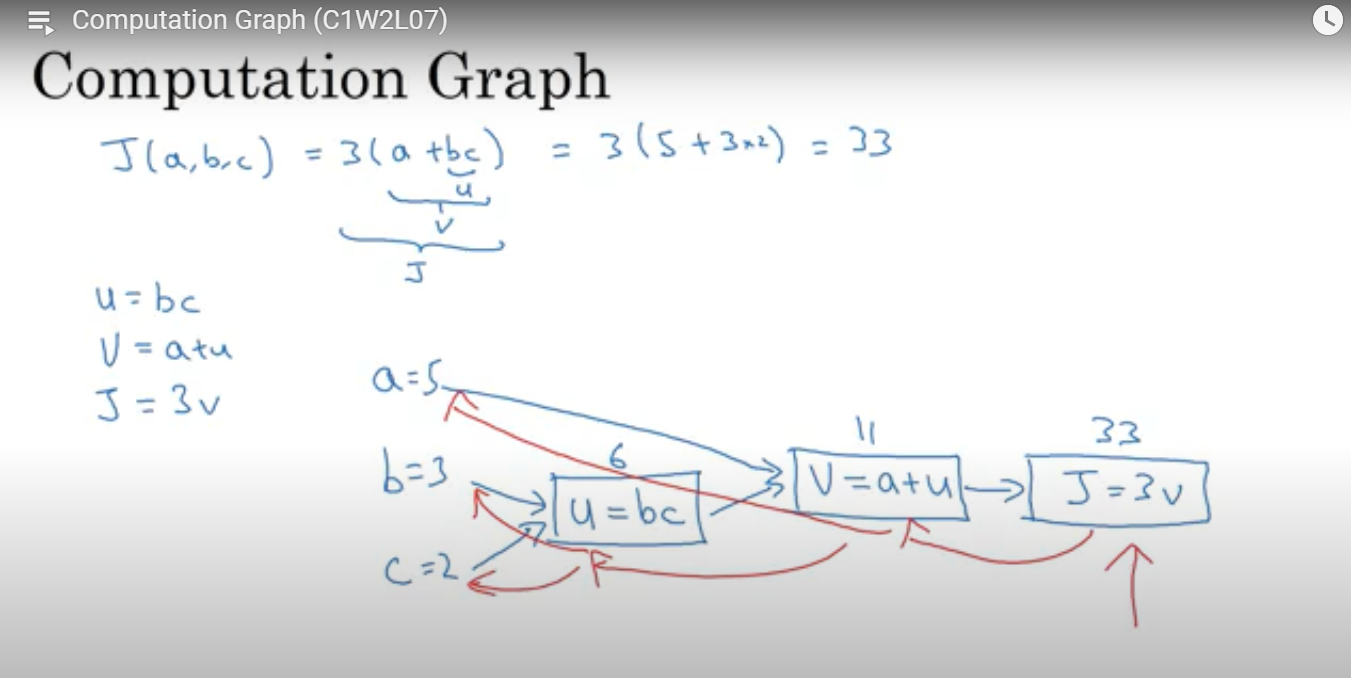 Computation Graph (C1W2L07)
Computation Graph
J(a,b,c) = 3(a + bc) = 3(5 + 3×2) = 33
u
V
J
u = bc
V = a+u
J = 3v
a=5
11
33
b=3
6
u = bc
V = a+u
J = 3v
c=2